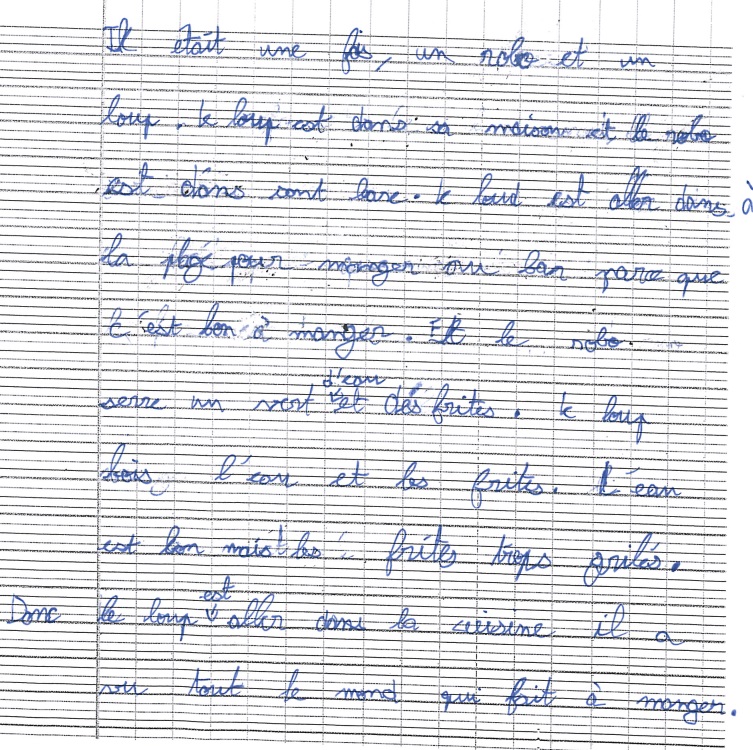 Il était une fois, un robo et un
loup. le loup est dans sa maison et le robo
est dans sont base. le loud est aller dans à
la plage pour manger ou bar parce que
c'est bon à manger. Et le robo
serre un vert d'eau et dés frites. le loup
bois l'eau et les frites. L'eau
est bon mais les frites trops grilés.
Donc le loup est aller dans la cuisine il a
vu tout le mond qui fait à manger.